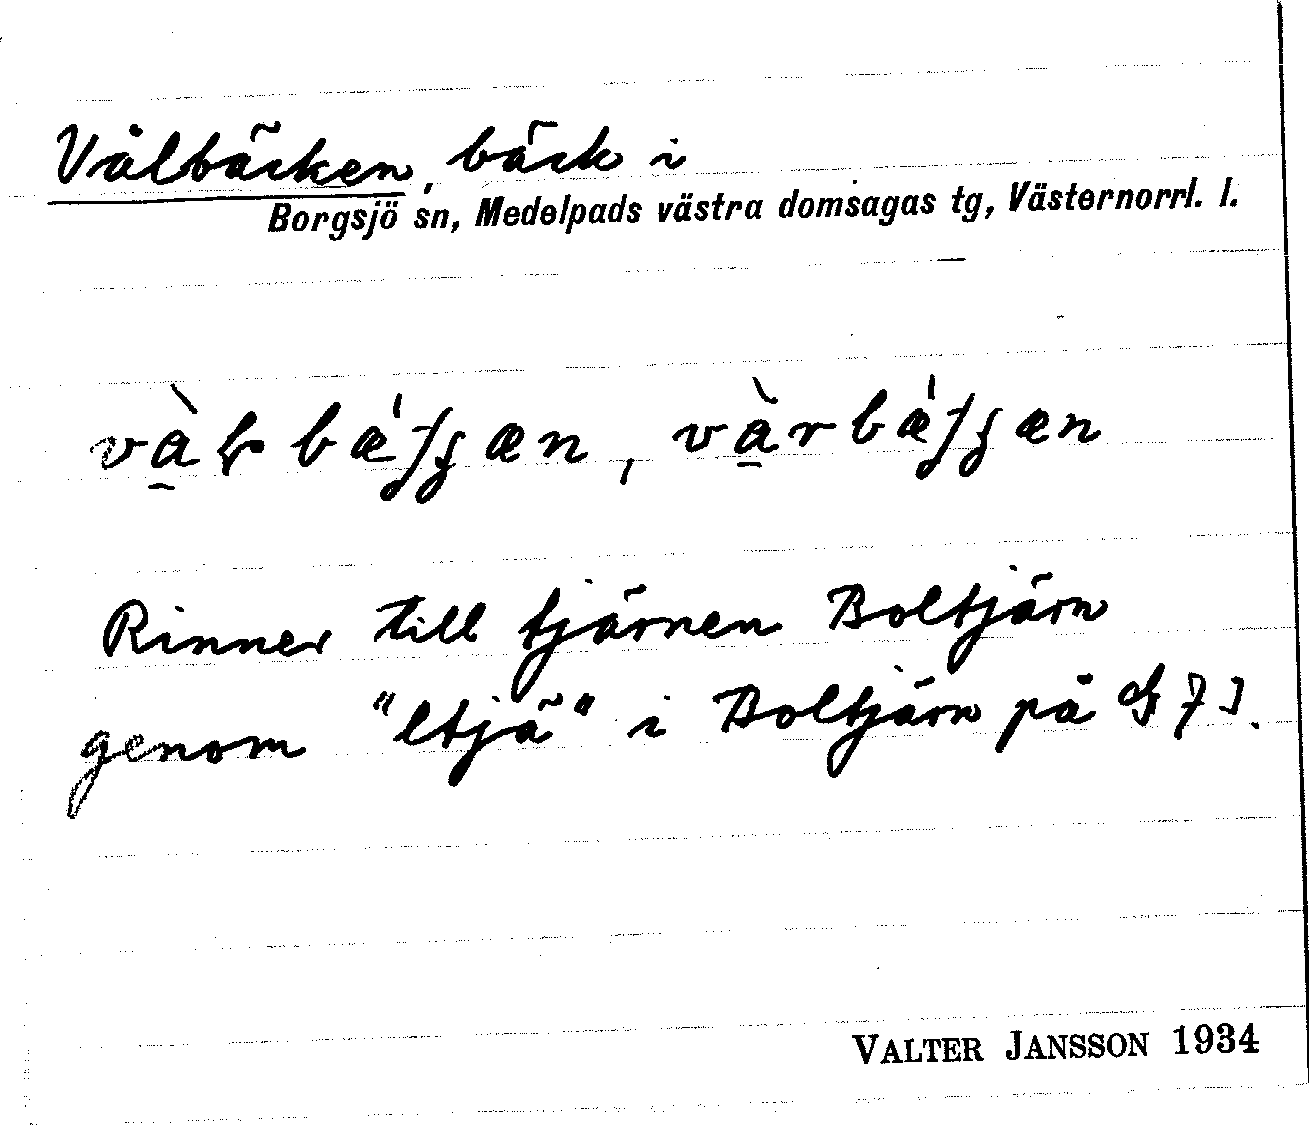 Vålbäcken, bäck i
Borgsjö sn, Medelpads västra domsagas tg, Västernorrl. l.
Rinner till tjärnen Boltjärn
genom "ltjä" i Boltjärn på
VALTER JANSSON 1934